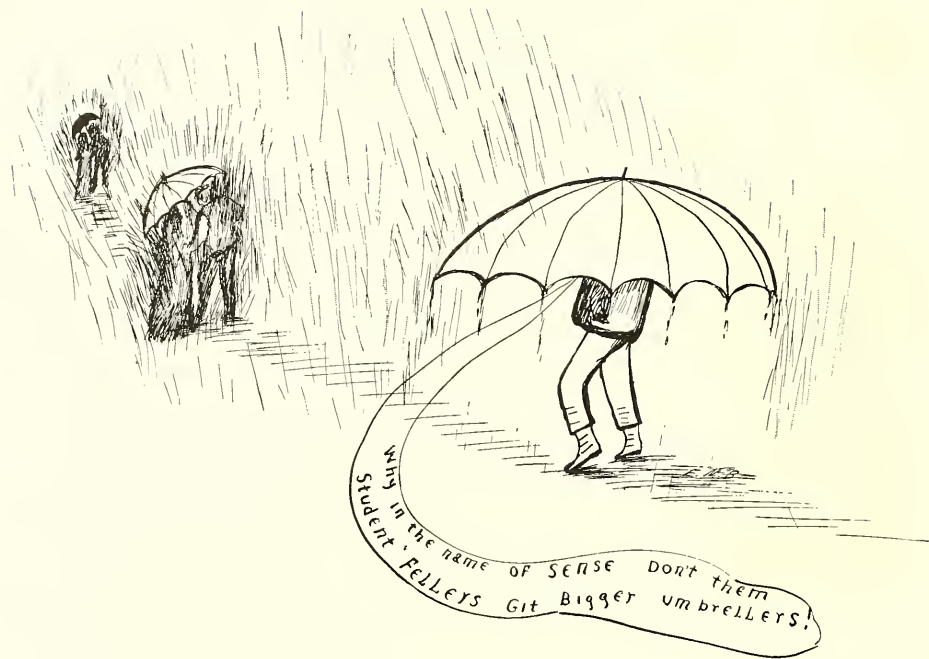 Why in the name of sense Don't them
Student Fellers Git Bigger umbrellers!